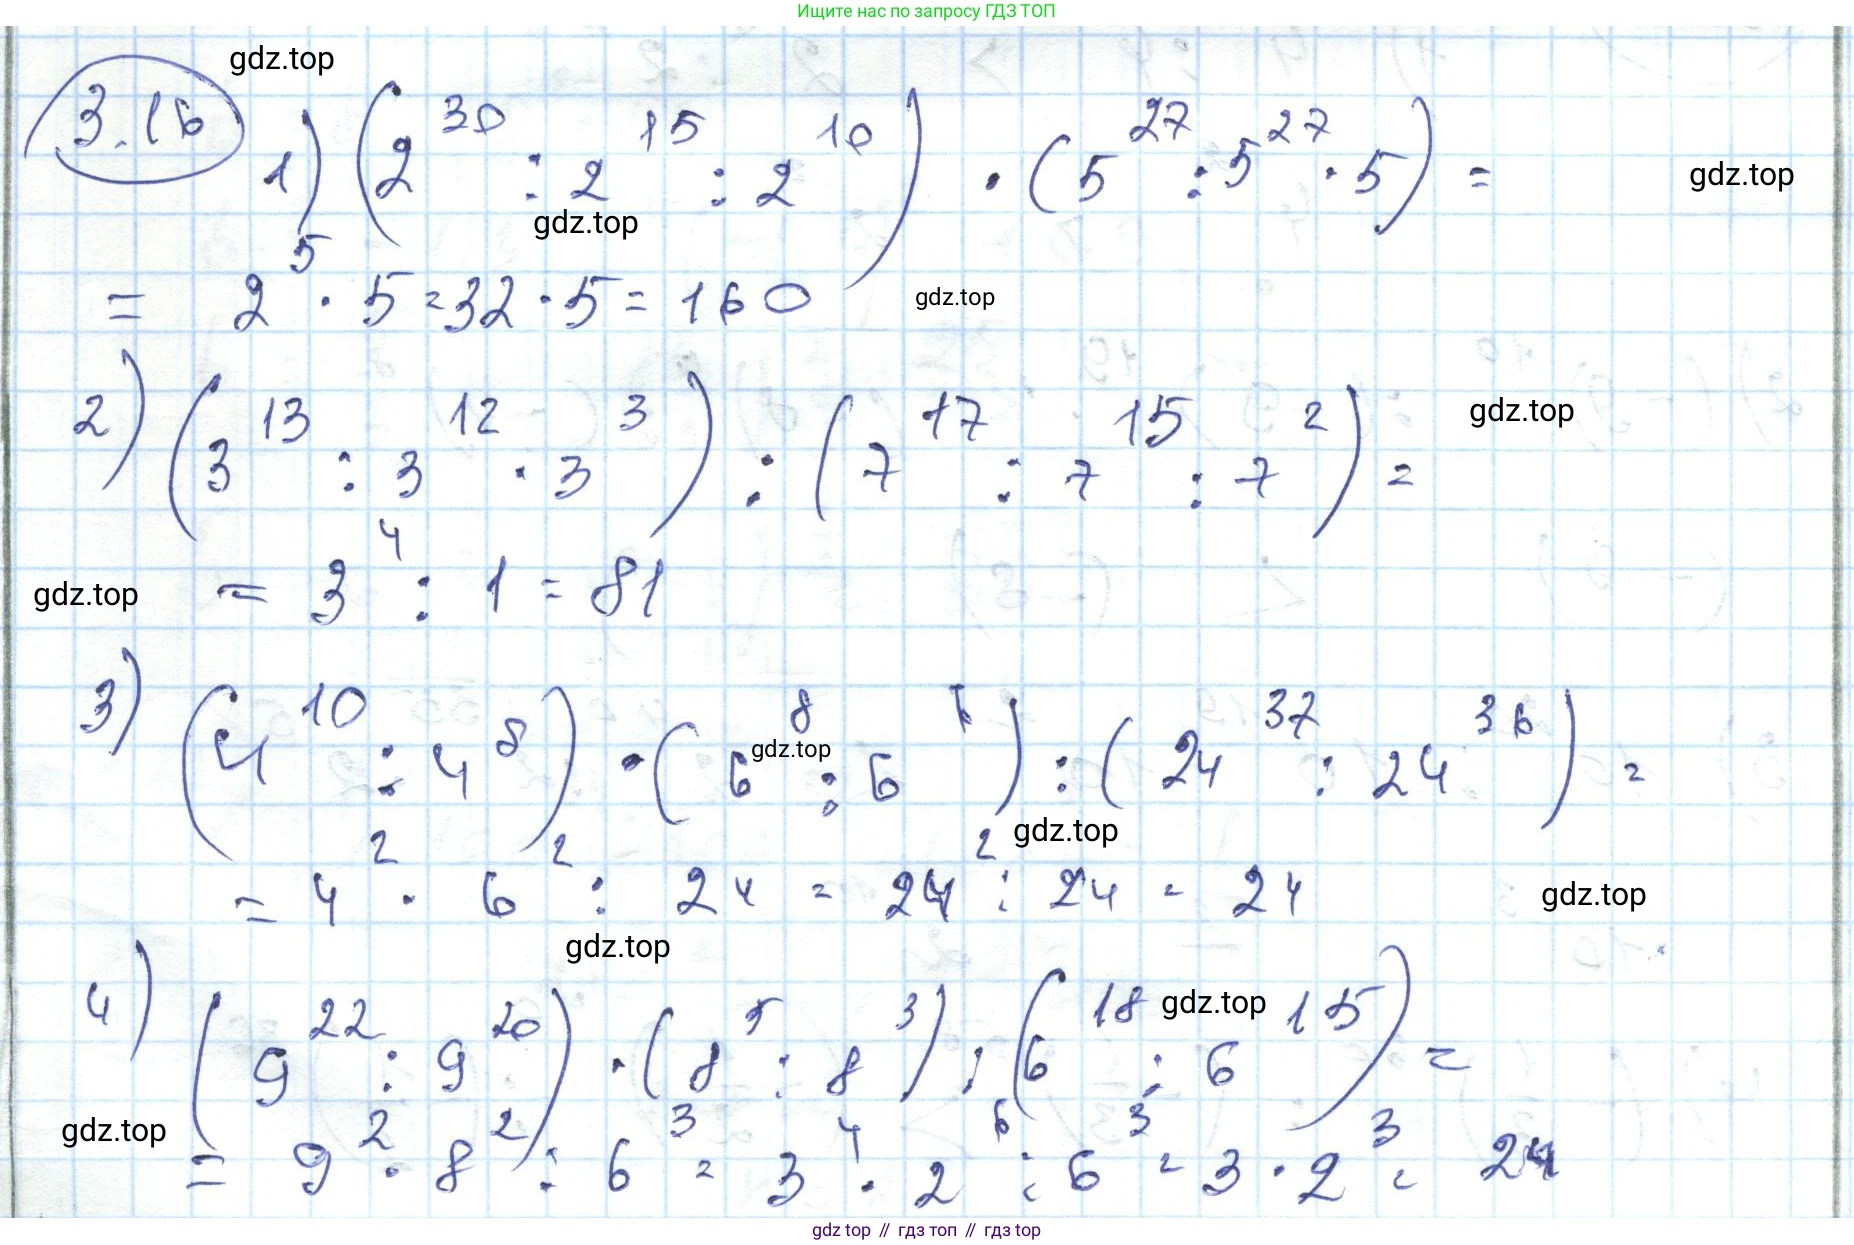 Ищите нас по запросу ГДЗ ТОП
gdz.top
3.16
1) (2^30 : 2^15 : 2^10) · (5^27 : 5^27 · 5) =
gdz.top
gdz.top
= 2^5 · 5 = 32 · 5 = 160
gdz.top
2) (3^13 : 3^12 · 3^3) : (7^17 : 7^15 : 7^2) =
gdz.top
= 3^4 : 1 = 81
gdz.top
3) (4^10 : 4^8) · (6^8 : 6^6) : (24^37 : 24^36) =
gdz.top
gdz.top
= 4^2 · 6^2 : 24 = 24^2 : 24 = 24
gdz.top
gdz.top
4) (9^22 : 9^20) · (8^5 : 8^3) : (6^18 : 6^15) =
gdz.top
gdz.top
= 9^2 · 8^2 : 6^3 = 3^4 · 2^6 : 6^3 = 3 · 2^3 = 24
gdz top // гдз топ // gdz top